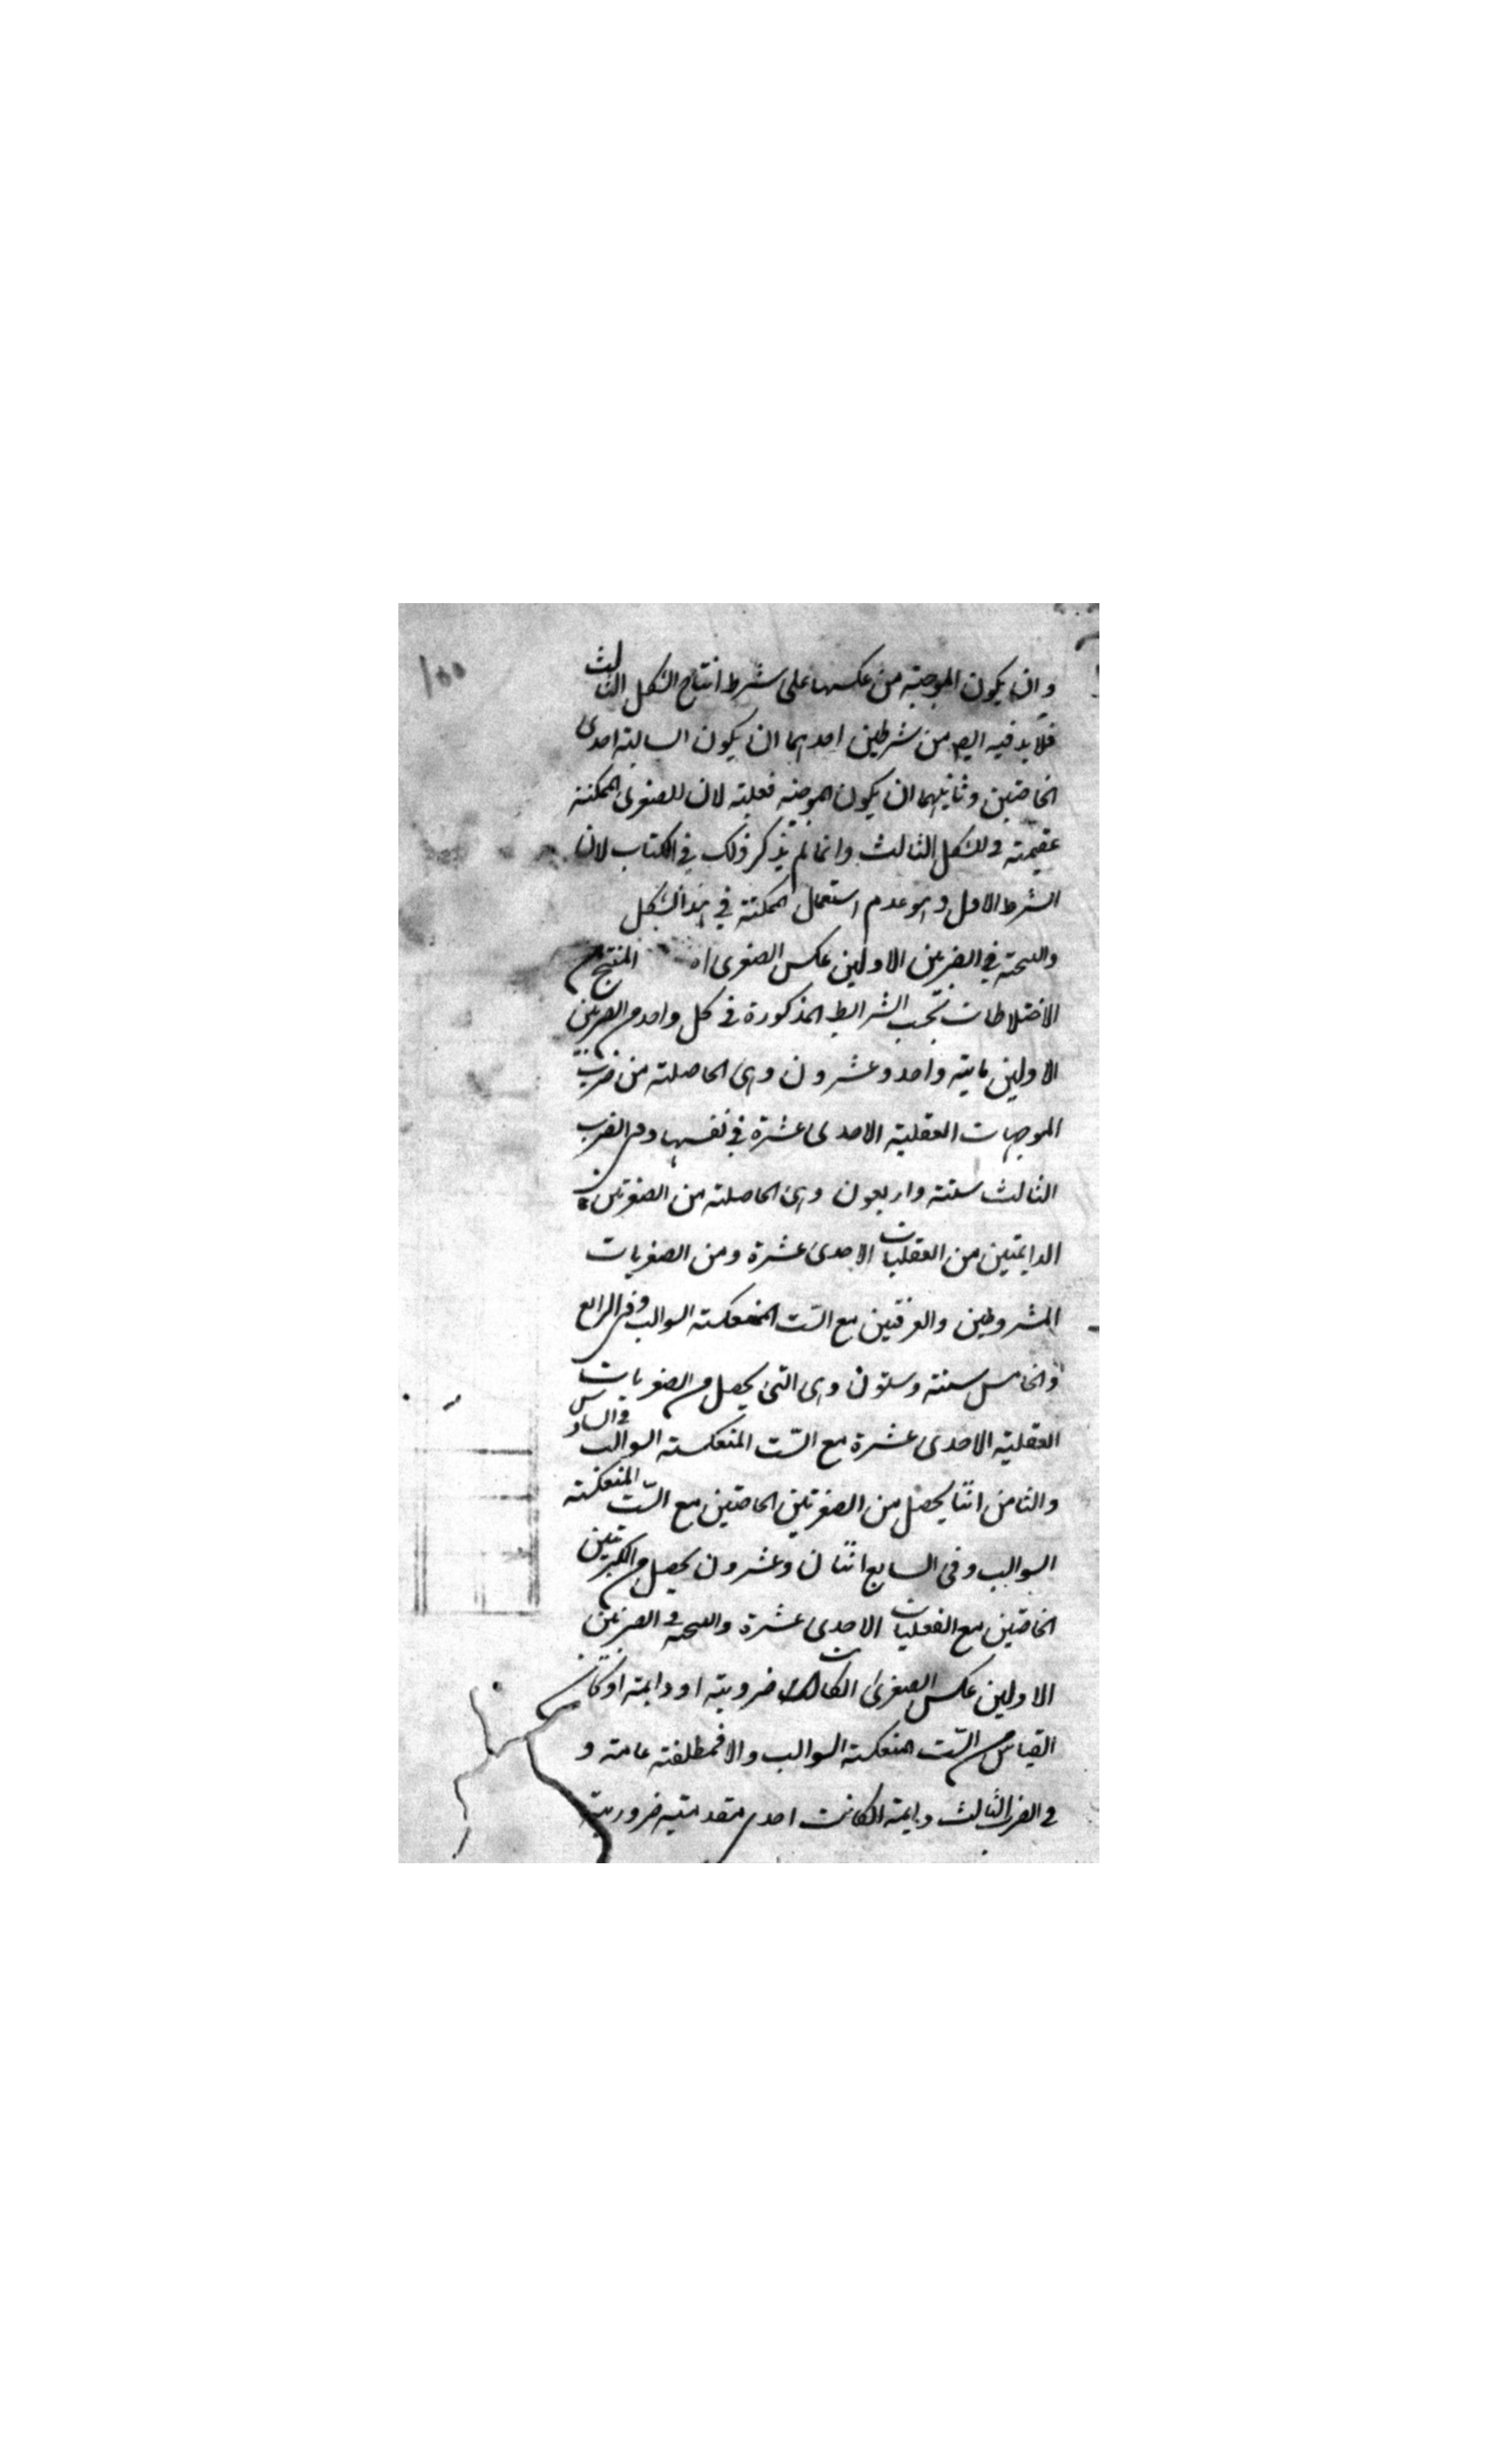 وان يكون الموجبة من عكسها على شرط انتاج الشكل الثالث
فلا بد فيه ايض من شرطين احدهما ان يكون السالبة احدى
الخاصتين وثانيهما ان يكون الموجبة فعلية لان الصغرى الممكنة
عقيمة في الشكل الثالث وانما لم يذكر ذلك في الكتاب لان
الشرط الاول وهو عدم استعمال الممكنة في هذا الشكل
والنتيجة في الضربين الاولين عكس الصغرى اه المنتج من
الاختلاطات بحسب الشرايط المذكورة في كل واحد من الضربين
الاولين ماية واحد وعشرون وهى الحاصلة من ضرب
الموجهات الفعلية الاحدى عشرة في نفسها وفى الضرب
الثالث ستة واربعون وهى الحاصلة من الصغرتين
الدايمتين من الفعليات الاحدى عشرة ومن الصغريات
المشروطين والعرفتين مع الست المنعكسة السوالب وفى الرابع
والخامس ستة وستون وهى التى يحصل من الصغريات
الفعلية الاحدى عشرة مع الست المنعكسة السوالب في السادس
والثامن اثنا يحصل من الصغرتين الخاصتين مع الست المنعكسة
السوالب وفى السابع اثنان وعشرون يحصل من الكبرتين
الخاصتين مع الفعليات الاحدى عشرة والنتيجة في الضربين
الاولين عكس الصغرى ضروية او دايمة او كان
القياس من الست منعكسة السوالب والا فمطلقة عامة و
في الضرب الثالث دايمة ان كانت احدى مقدمتيه ضرورية